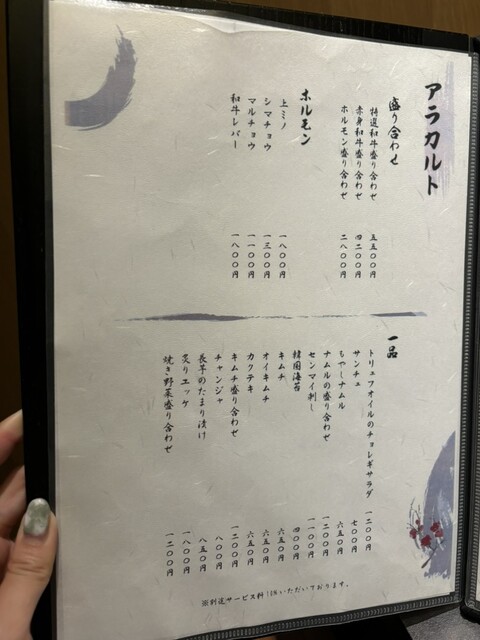 アラカルト
盛り合わせ
特選和牛盛り合わせ 五五〇〇円
赤身和牛盛り合わせ 四二〇〇円
ホルモン盛り合わせ 二八〇〇円
ホルモン
上ミノ 一八〇〇円
シマチョウ 一三〇〇円
マルチョウ 一一〇〇円
和牛レバー 一八〇〇円
一品
トリュフオイルのチョレギサラダ 一二〇〇円
サンチュ 七〇〇円
もやしナムル 六五〇円
ナムルの盛り合わせ 一二〇〇円
センマイ刺し 一一〇〇円
韓国海苔 四〇〇円
キムチ 六五〇円
オイキムチ 六五〇円
カクテキ 六五〇円
キムチ盛り合わせ 一二〇〇円
チャンジャ 八〇〇円
長芋のたまり漬け 八五〇円
炙りユッケ 一八〇〇円
焼き野菜盛り合わせ 一二〇〇円
※別途サービス料10%いただいております。